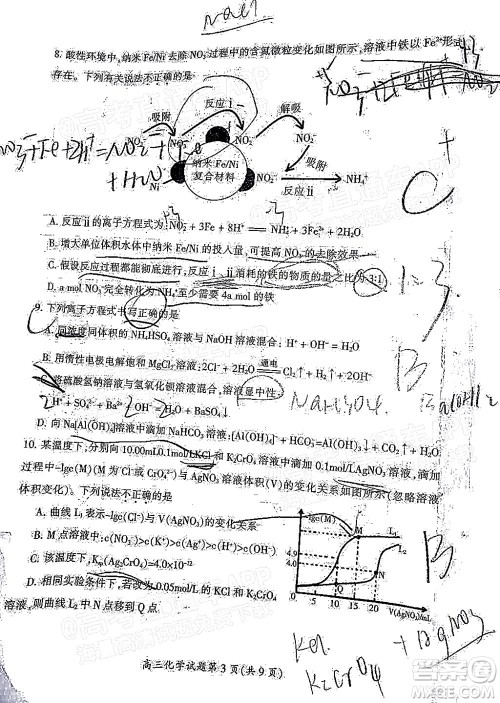 NaCl
8. 酸性环境中，纳米Fe/Ni去除NO₃⁻过程中的含氮微粒变化如图所示，溶液中铁以Fe²⁺形式
存在。下列有关说法不正确的是
吸附 反应 i 解吸
NO₃⁻ NO₃⁻ NO₂⁻ NO₂⁻
NO₃⁻+Fe+2H⁺=NO₂⁻+
+H₂O
Ni
纳米Fe/Ni
复合材料
吸附
NO₂⁻ 反应 ii NH₄⁺
A. 反应ii的离子方程式为: NO₂⁻+3Fe+8H⁺═NH₄⁺+3Fe²⁺+2H₂O
B. 增大单位体积水体中纳米Fe/Ni的投入量，可提高NO₃⁻的去除效果
C. 假设反应过程都能彻底进行，反应i、ii消耗的铁的物质的量之比为3:1
1=3
D. a mol NO₃⁻完全转化为NH₄⁺至少需要4a mol的铁
9. 下列离子方程式书写正确的是
C
A. 同浓度同体积的NH₄HSO₄溶液与NaOH溶液混合: H⁺+OH⁻═H₂O
B. 用惰性电极电解饱和MgCl₂溶液: 2Cl⁻+2H₂O 通电 Cl₂↑+H₂↑+2OH⁻
B
C. 将硫酸氢钠溶液与氢氧化钡溶液混合，溶液显中性:
2H⁺+SO₄²⁻+Ba²⁺+2OH⁻═2H₂O+BaSO₄↓
NaHSO₄ Ba(OH)₂
D. 向Na[Al(OH)₄]溶液中滴加NaHCO₃溶液: [Al(OH)₄]⁻+HCO₃⁻═Al(OH)₃↓+CO₂↑+H₂O
10. 某温度下，分别向10.00mL0.1mol/LKCl和K₂CrO₄溶液中滴加0.1mol/LAgNO₃溶液，滴加
过程中-lgc(M)（M为Cl⁻或CrO₄²⁻）与AgNO₃溶液体积(V)的变化关系如图所示（忽略溶液
体积变化）。下列说法不正确的是
A. 曲线L₁表示-lgc(Cl⁻)与V(AgNO₃)的变化关系
B. M点溶液中: c(NO₃⁻)>c(K⁺)>c(Ag⁺)>c(H⁺)>c(OH⁻)
C. 该温度下，Kₛₚ(Ag₂CrO₄)=4.0×10⁻¹²
D. 相同实验条件下，若改为0.05mol/L的KCl和K₂CrO₄
溶液，则曲线L₂中N点移到Q点
-lgc(M) M L₁
L₂
4.9
4.0
Q N
0 5 10 15 20 V(AgNO₃)/mL
B
KCl
K₂CrO₄
+AgNO₃
高三化学试题第3页(共9页)